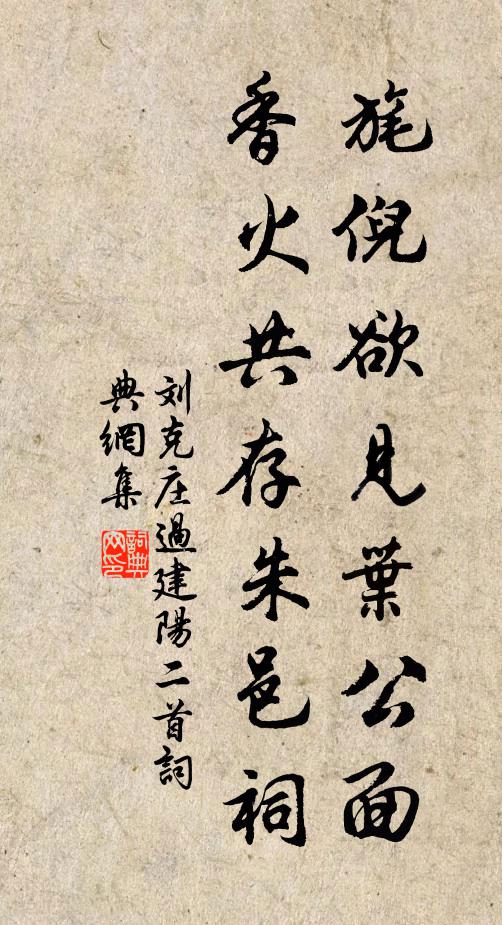 旄倪欲見葉公面
香火共存朱邑祠
刘克庄過建陽二首詞
典網集
詞典
网印